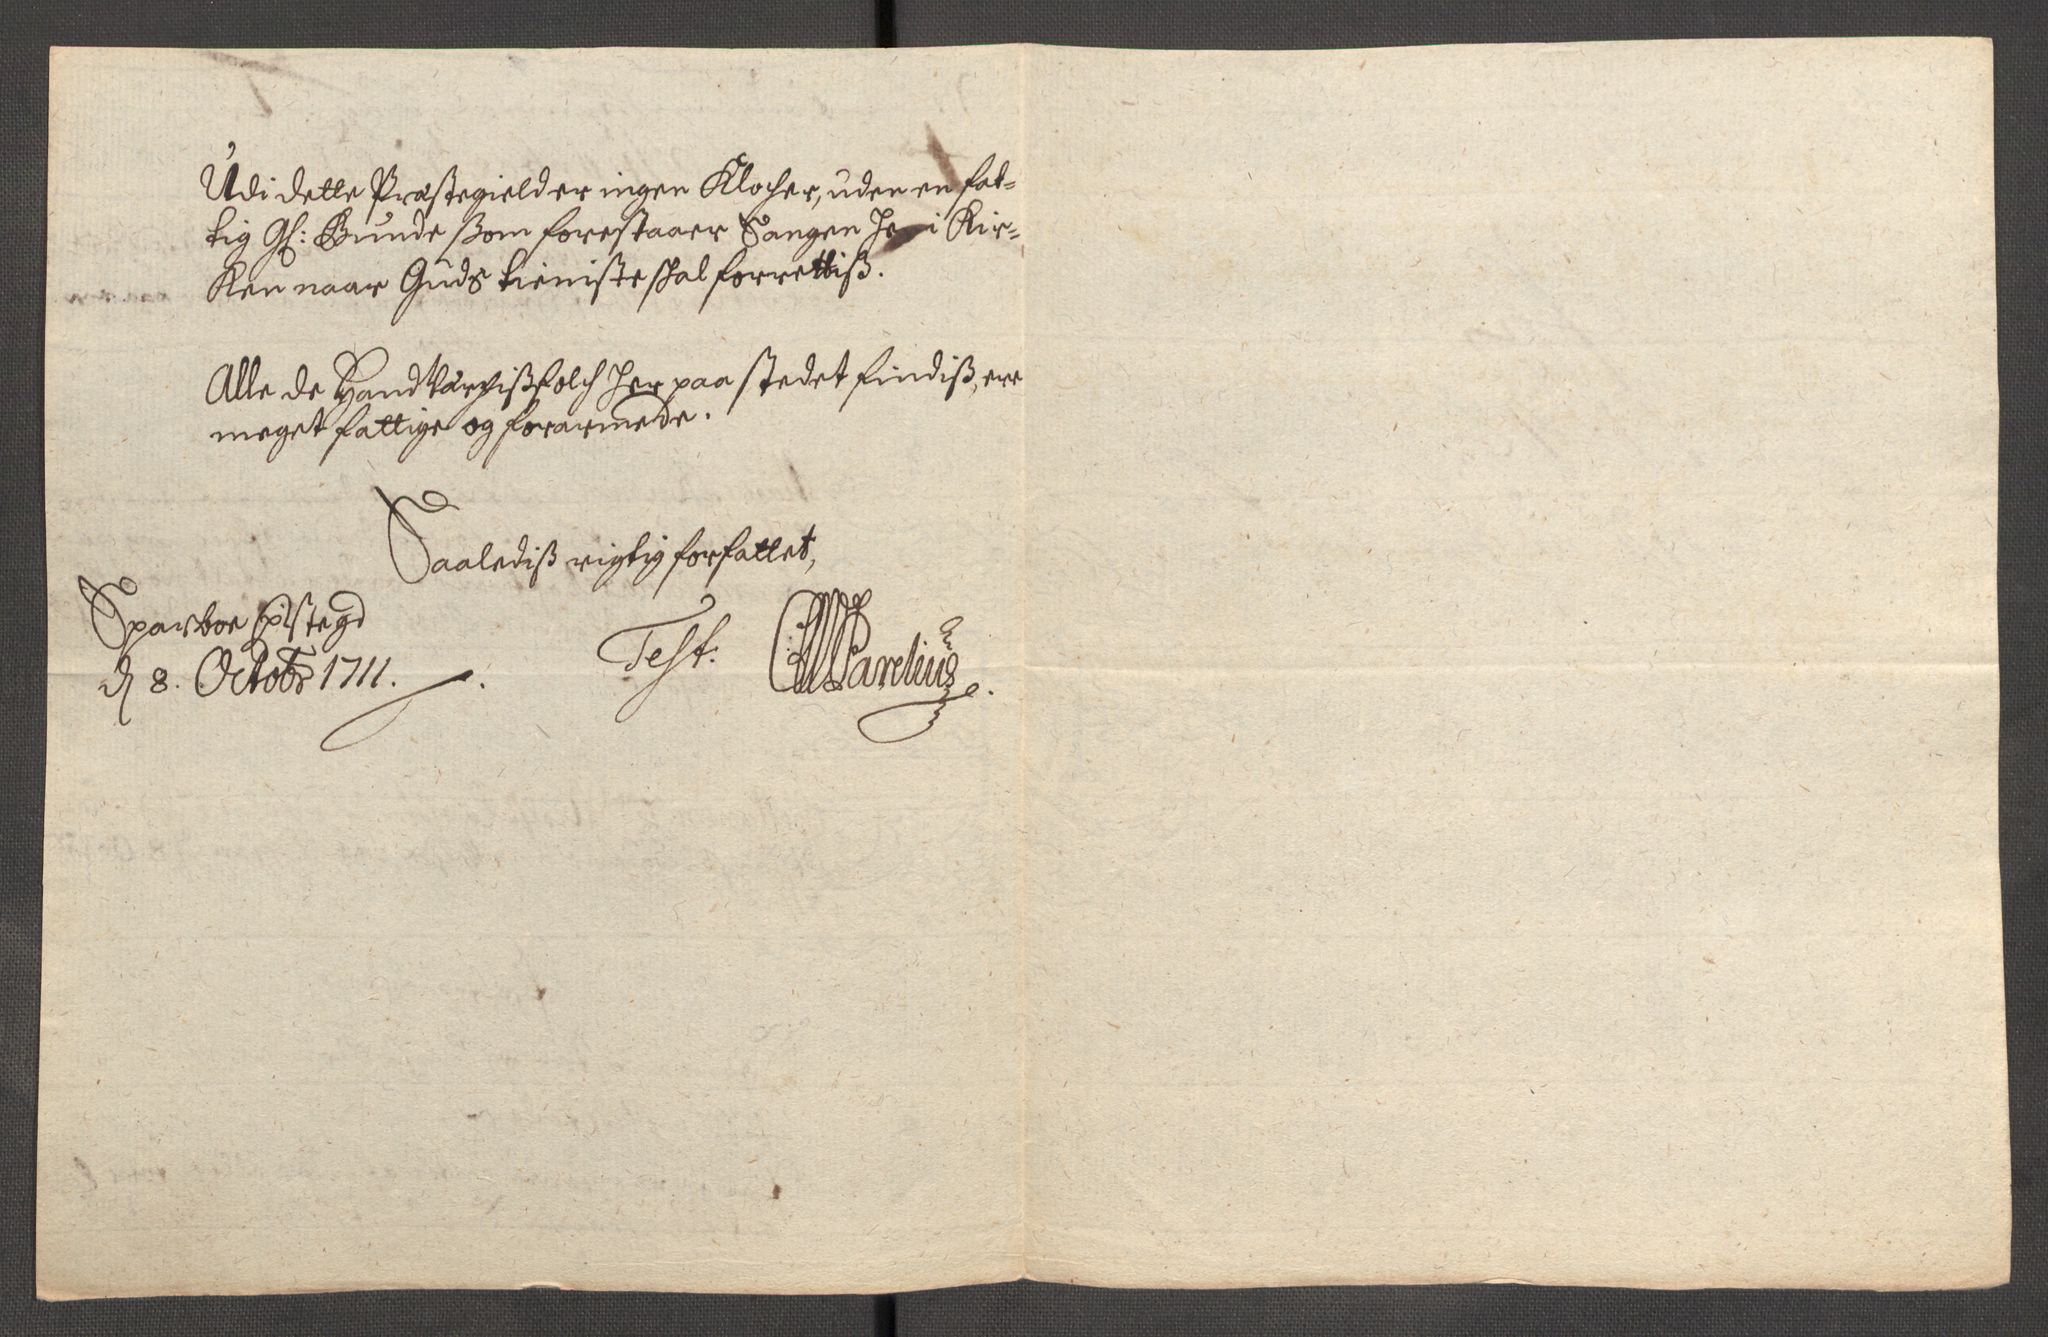 Udi dette Præstegield er ingen Klocher, uden en fat-
tig Gl: Bunde ßom forestaaer Sangen her i Kir-
Ken naar Guds tieniste skal forrettiß.
Alle de Handtværchißfolch her paa stedet findiß, ere
meget fattige og forarmede.
Saalediß rigtig forfattet,
Sparboe Præstegd
d 8. Octobr 1711.
Test. Parelius